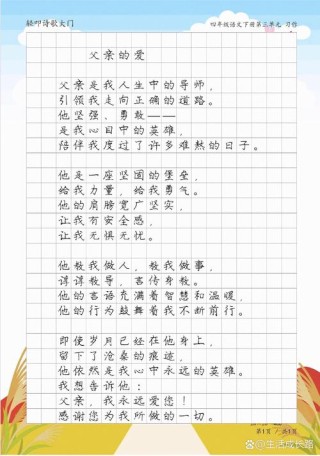 轻叩诗歌大门
四年级语文下册第三单元 习作
父亲的爱
父亲是我人生中的导师,
引领我走向正确的道路。
他坚强、勇敢——
是我心目中的英雄,
陪伴我度过了许多难熬的日子。
他是一座坚固的堡垒,
给我力量,给我勇气。
他的肩膀宽广坚实,
让我有安全感,
让我无惧无忧。
他教我做人,教我做事,
谆谆教导,言传身教。
他的言语充满着智慧和温暖,
他的行为鼓舞着我不断前行。
即使岁月已经在他身上,
留下了沧桑的痕迹,
他依然是我心中永远的英雄。
我想告诉他:
父亲,我永远爱您!
感谢您为我所做的一切。
第1页 / 共1页
@生活成长路